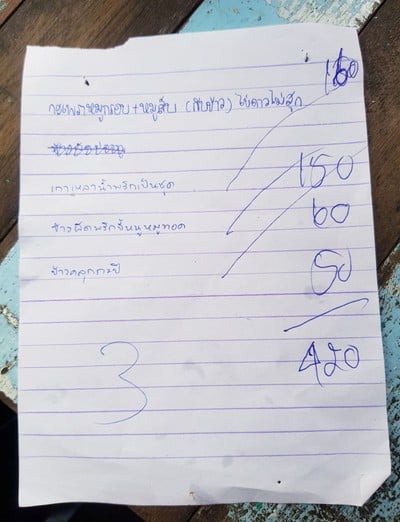 กะเพราหมูกรอบ+หมูสับ (กับข้าว) ไข่ดาวไม่สุก 160
เกาเหลาน้ำพริกเป็นชุด 150
ข้าวผัดพริกขี้หนูหมูทอด 60
ข้าวคลุกกะปิ 50
420
3